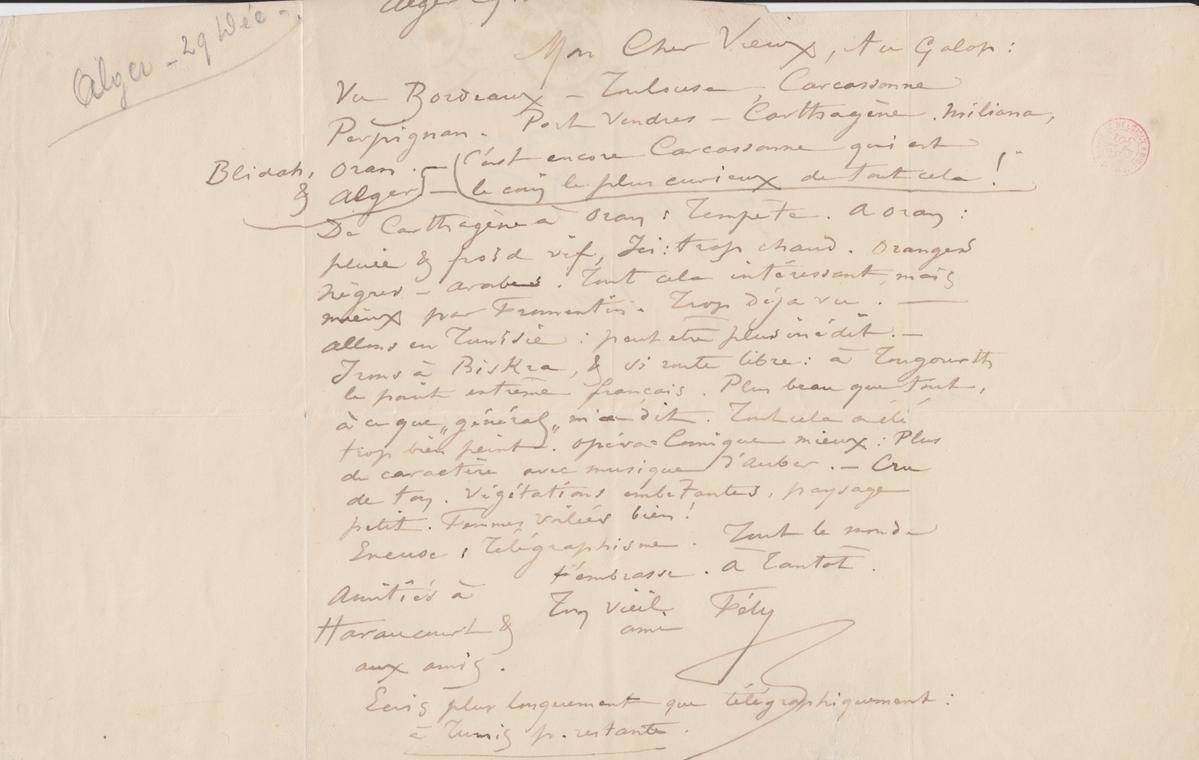 Alger - 29 Déc -.
Alger 29
Mon Cher Vieux, Au Galop :
Vu Bordeaux - Toulouse, Carcassonne
Perpignan - Port Vendres - Carthagène. Miliana,
Blidah, Oran. - (C'est encore Carcassonne qui est
& Alger) - le coin le plus curieux de tout cela !
De Carthagène à Oran : Tempête. A Oran :
pluie & froid vif, Ici : trop chaud. Orangers
nègres - arabes. Tout cela intéressant, mais
mieux par Fromentin. Trop déjà vu. —
allons en Tunisie : peut être plus inédit. -
Irons à Biskra, & si route libre : à Tougourth
le point extrême français. Plus beau que tout,
à ce que „général„ m'a dit. Tout cela a été
trop bien peint. Opéra=Comique mieux : Plus
de caractère avec musique d'Auber. - Cru
de ton. Végétations embêtantes, paysage
petit. Femmes voilées bien !
Excuse : Télégraphisme. Tout le monde
t'embrasse. À Tantôt.
Amitiés à
Ton vieil Fély
ami
Haraucourt &
aux amis.
Ecris plus longuement que télégraphiquement :
à Tunis p. restante.